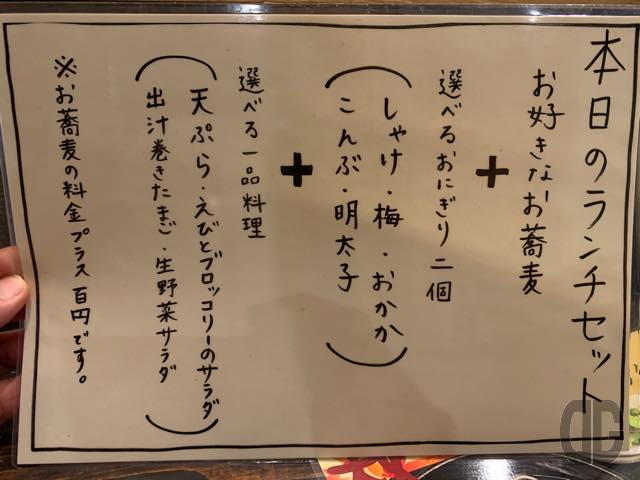 本日のランチセット
お好きなお蕎麦
+
選べるおにぎり二個
(しゃけ・梅・おかか
こんぶ・明太子)
+
選べる一品料理
(天ぷら・えびとブロッコリーのサラダ
出汁巻きたまご・生野菜サラダ)
※お蕎麦の料金プラス百円です。